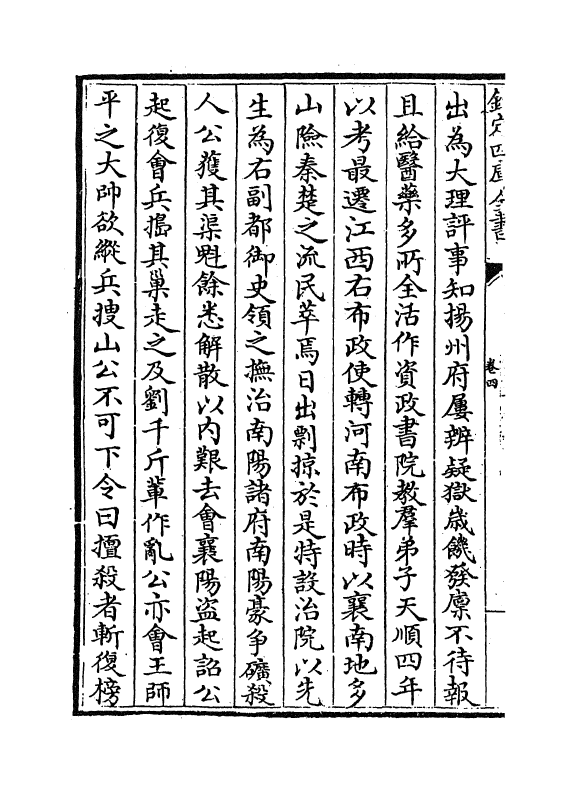 欽定四庫全書
卷四
出為大理評事知揚州府屢辨疑獄歲饑發廩不待報
且給醫藥多所全活作資政書院教羣弟子天順四年
以考最遷江西右布政使轉河南布政時以襄南地多
山險秦楚之流民萃焉日出剽掠於是特設治院以先
生為右副都御史領之撫治南陽諸府南陽豪爭礦殺
人公獲其渠魁餘悉解散以内艱去會襄陽盜起詔公
起復會兵搗其巢走之及劉千斤軰作亂公亦會王師
平之大帥欲縱兵搜山公不可下令曰擅殺者斬復榜